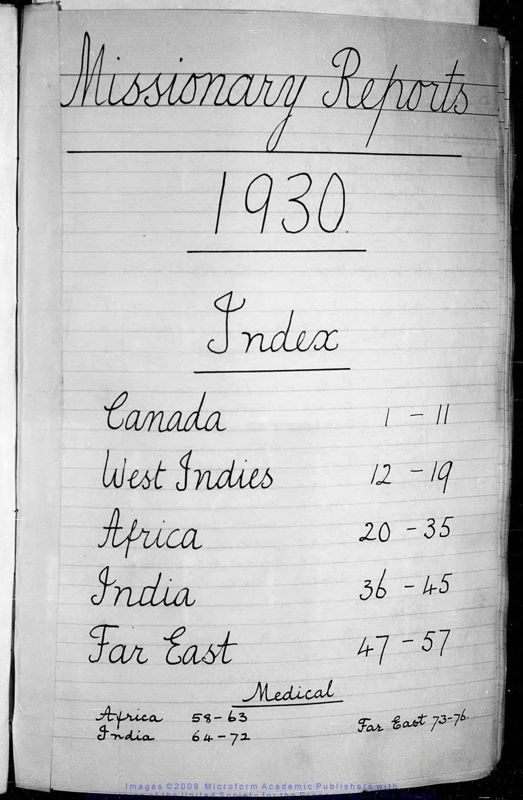 Missionary Reports
1930.
Index
Canada 1 - 11
West Indies 12 - 19
Africa 20 - 35
India 36 - 45
Far East 47 - 57
Medical
Africa 58 - 63
India 64 - 72
Far East 73-76.
Images ©2009 Microform Academic Publishers with
of the United Society for the